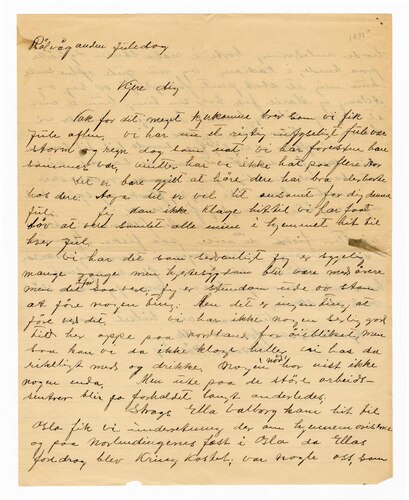 Rölvåg anden juledag
Kjere dig
Tak for det meget kjerkomne brev som vi fik
jule aften, vi har nu en rigtig juleveir
storm og regn dag som nat. Vi har forresten bare
sommerveir, vinter har vi ikke hat paa flere aar
Det er bare gjilt at höre dere har bra derborte
hos dere. Aaja det er vel til ansamt for dig denne
jule. Jeg kan ikke klage hittil vi har faat
lov at vere samlet alle mine i hjemmet hit til
hver jul.
Vi har det som sedvanligt jeg er sygelig
mange gange men hjertesygdom blir vere med årene
men det får saa vere. Jeg er stundom ude av stand
at före nogen ting. Men det er ingen tien, at
före ved det. Vi har ikke nogen serlig god
tid her oppe paa nordland for öieblikket, men
bra kan vi da ikke klage heller, vi har da
rikeligt mad og drikke. Nogen nöd har vist ikke
nogen enda. Men ute paa de större arbeids-
sentrer blir jo forholdet langt anderledes.
Straks Ella Valborg kam hit til
Oslo fik vi underetning der om hjemmeviserne
og paa Nordlendingenes fest i Oslo da Ellas
fordrag blev Kringkastet, var nogle ord, som